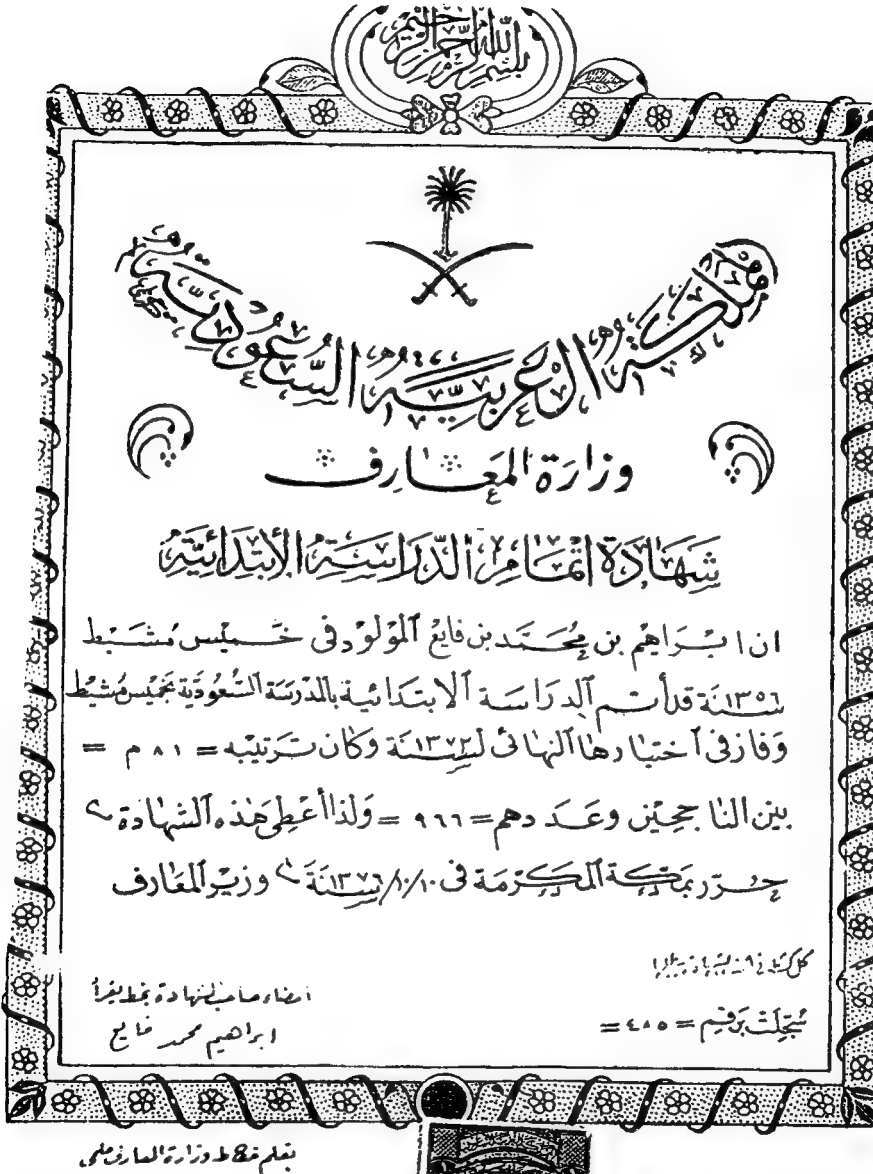 بسم الله الرحمن الرحيم
المملكة العربية السعودية
وزارة المعارف
شهادة اتمام الدراسة الابتدائية
ان ابراهيم بن محمد بن فايع المولود في خميس مشيط
سنة ١٣٥٦ قد أتم الدراسة الابتدائية بالمدرسة السعودية بخميس مشيط
وفاز في اختبارها النهائي لسنة ١٣٧٢ وكان ترتيبه = ٨١ م =
بين الناجحين وعددهم = ٩٦٦ = ولذا أعطى هذه الشهادة
حرر بمكة المكرمة في ١٠/١٠/ سنة ١٣٧٦ وزير المعارف
سجلت برقم = ٤٨٥ =
امضاء صاحب الشهادة بخط يقرأ
ابراهيم محمد فايع
بقلم خطاط وزارة المعارف